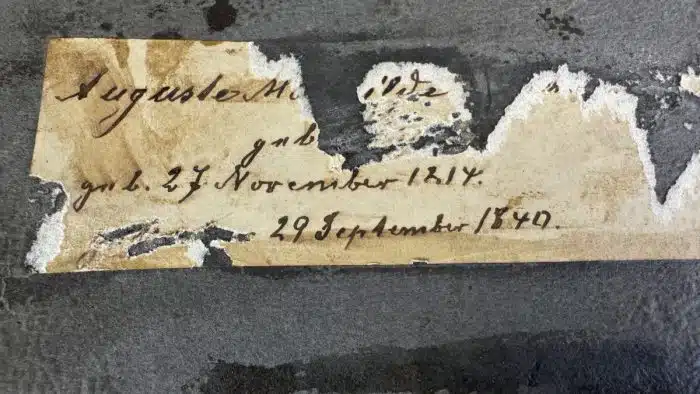 Auguste M ilde
geb
geb. 27 November 1814.
29 September 1840.